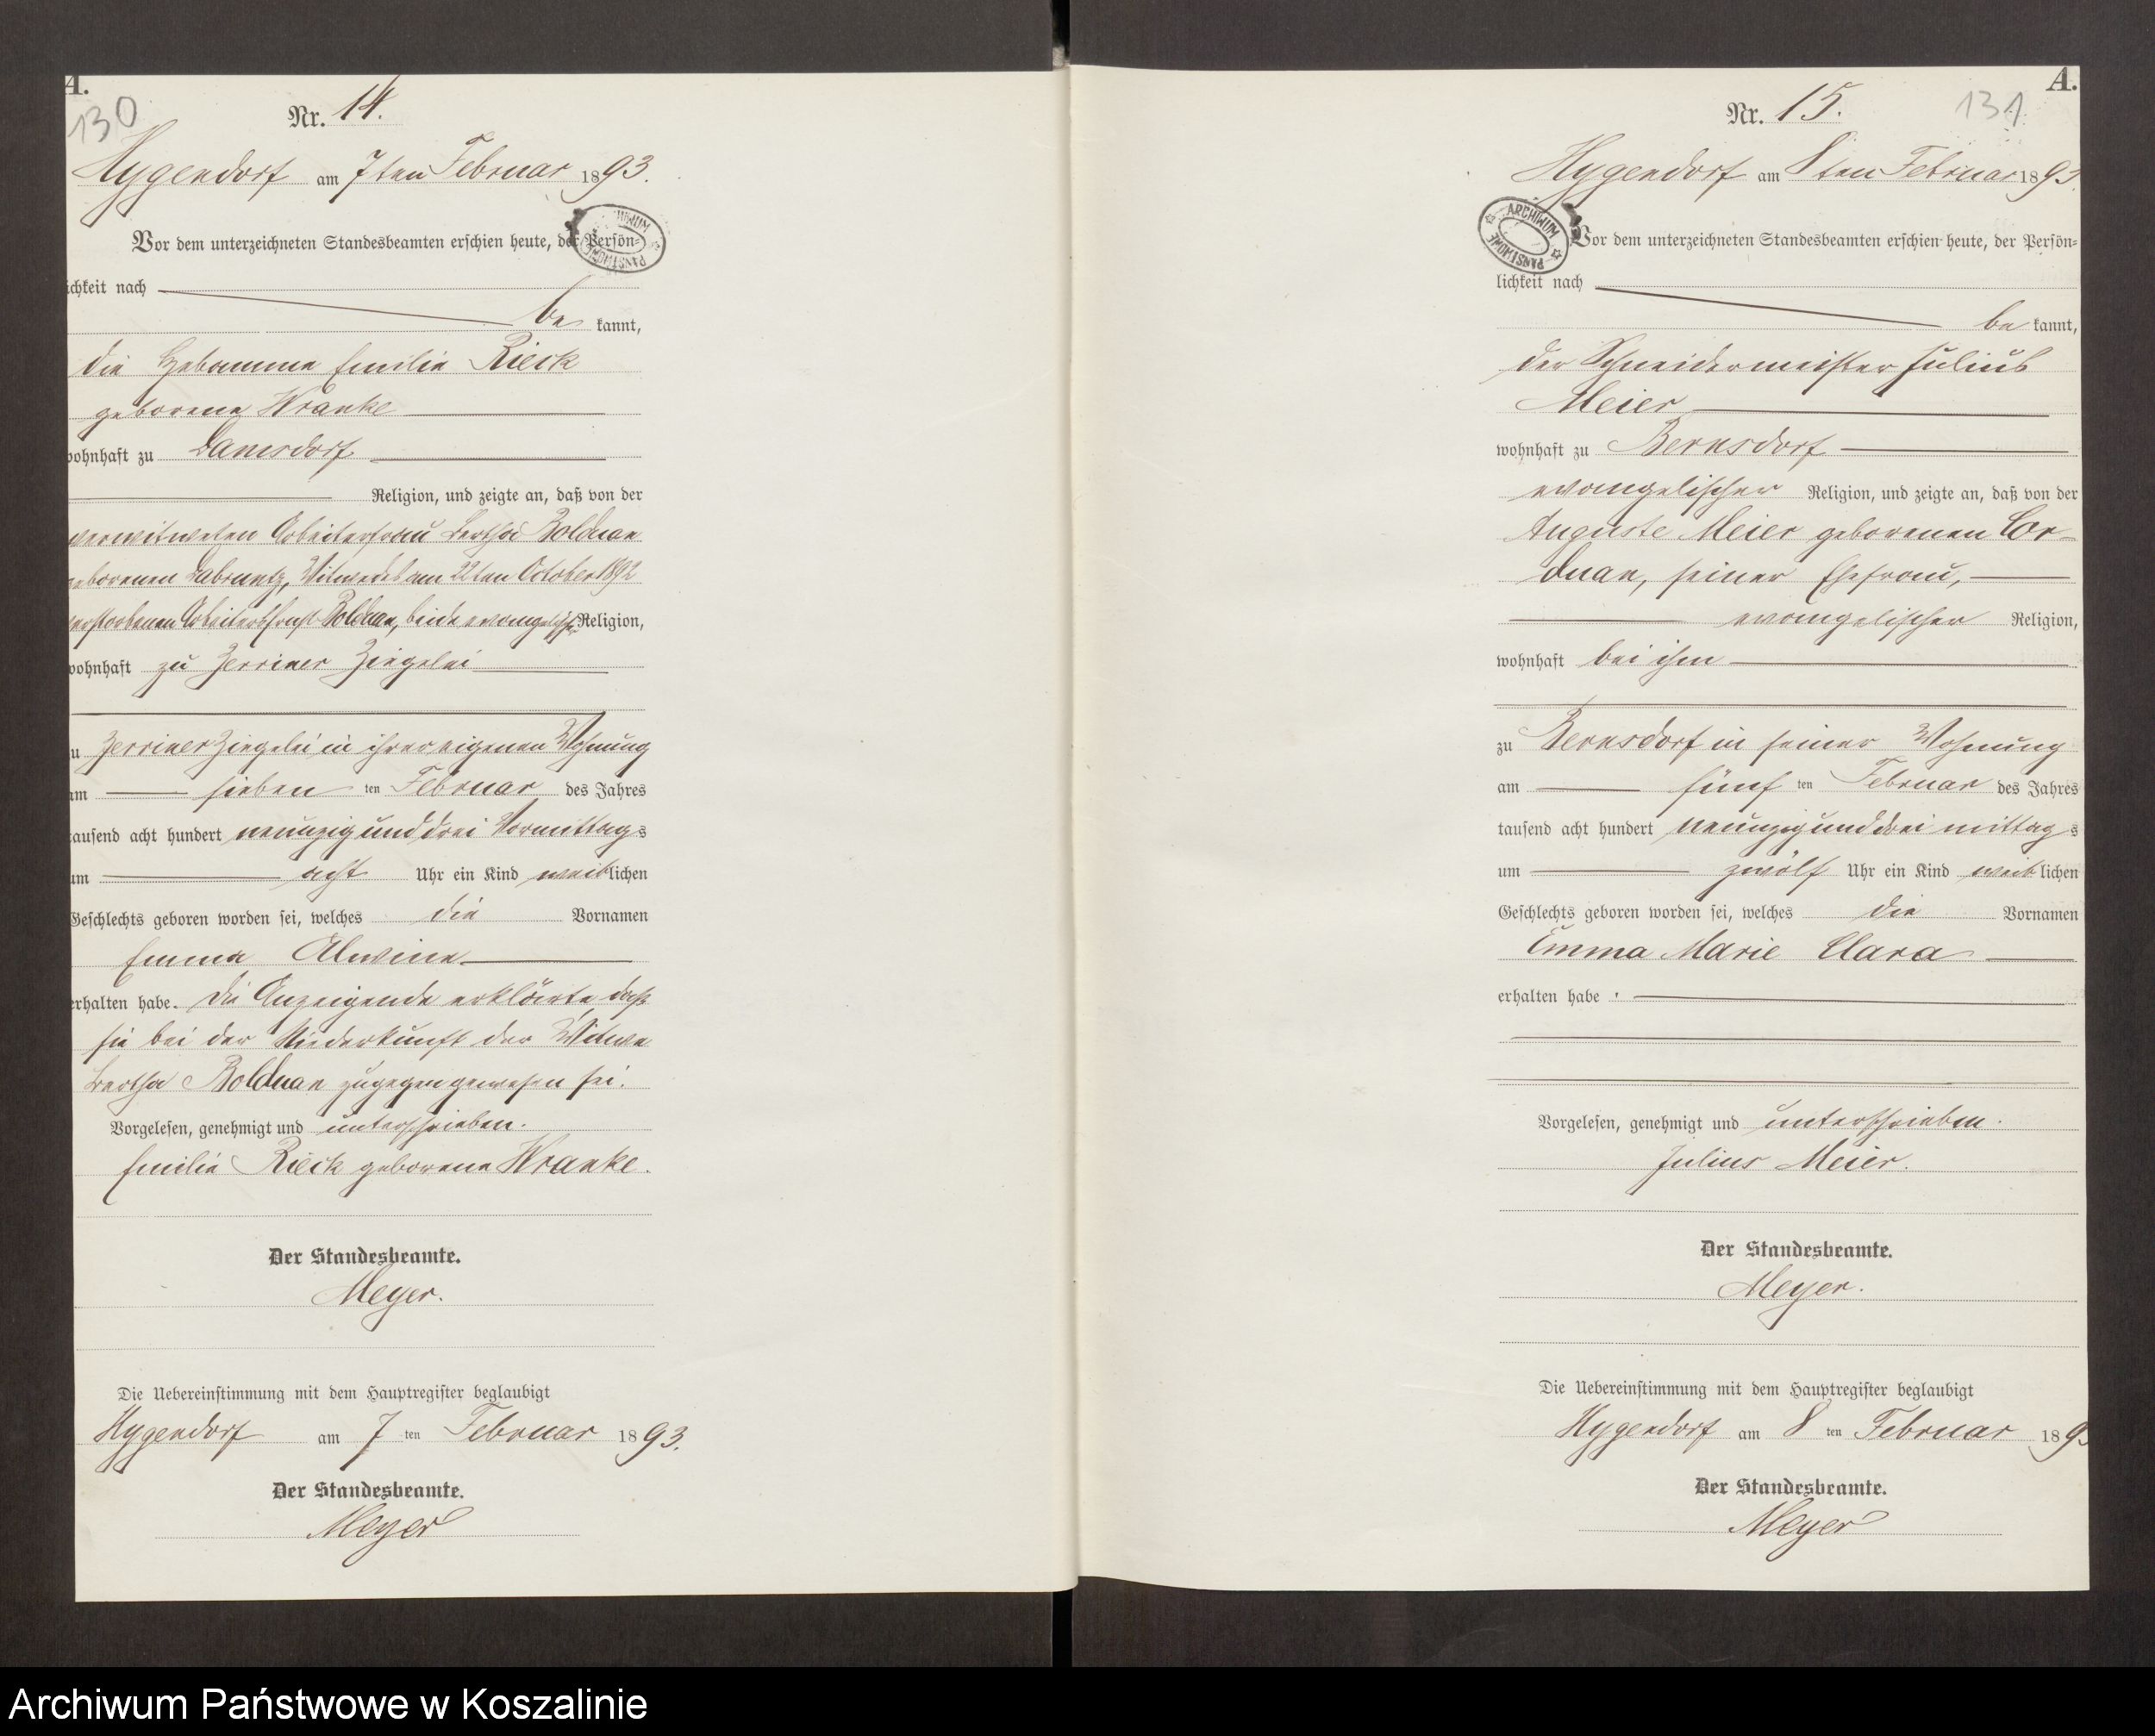 A.
130
Nr. 14.
Hygendorf am 7ten Februar 1893.
Vor dem unterzeichneten Standesbeamten erschien heute, der Persön=
ichkeit nach
be kannt,
die Hebamme Emilie Rieck
geborene Wranke
wohnhaft zu Damsdorf
Religion, und zeigte an, daß von der
verwitweten Arbeiterfrau Bertha Bolduan
geborenen Labruntz, Witwe des am 22ten October 1892
verstorbenen Arbeiters Ernst Bolduan, beide evangelischer Religion,
wohnhaft zu Zerriner Ziegelei
zu Zerriner Ziegelei in ihrer eigenen Wohnung
am sieben ten Februar des Jahres
tausend acht hundert neunzig und drei Vormittags
um acht Uhr ein Kind weiblichen
Geschlechts geboren worden sei, welches die Vornamen
Emma Alwine
erhalten habe. Die Anzeigende erklärte, daß
sie bei der Niederkunft der Witwe
Bertha Bolduan zugegen gewesen sei.
Vorgelesen, genehmigt und unterschrieben.
Emilie Rieck geborene Wranke.
Der Standesbeamte.
Meyer.
Die Uebereinstimmung mit dem Hauptregister beglaubigt
Hygendorf am 7 ten Februar 1893.
Der Standesbeamte.
Meyer
A.
131
Nr. 15.
Hygendorf am 8ten Februar 1893.
ARCHIWUM PAŃSTWOWE
Vor dem unterzeichneten Standesbeamten erschien heute, der Persön=
lichkeit nach
be kannt,
der Schneidermeister Julius
Meier
wohnhaft zu Bernsdorf
evangelischer Religion, und zeigte an, daß von der
Auguste Meier geborenen Cor=
duan, seiner Ehefrau,
evangelischer Religion,
wohnhaft bei ihm
zu Bernsdorf in seiner Wohnung
am fünf ten Februar des Jahres
tausend acht hundert neunzig und drei mittags
um zwölf Uhr ein Kind weiblichen
Geschlechts geboren worden sei, welches die Vornamen
Emma Marie Clara
erhalten habe .
Vorgelesen, genehmigt und unterschrieben.
Julius Meier.
Der Standesbeamte.
Meyer.
Die Uebereinstimmung mit dem Hauptregister beglaubigt
Hygendorf am 8 ten Februar 189
Der Standesbeamte.
Meyer
Archiwum Państwowe w Koszalinie